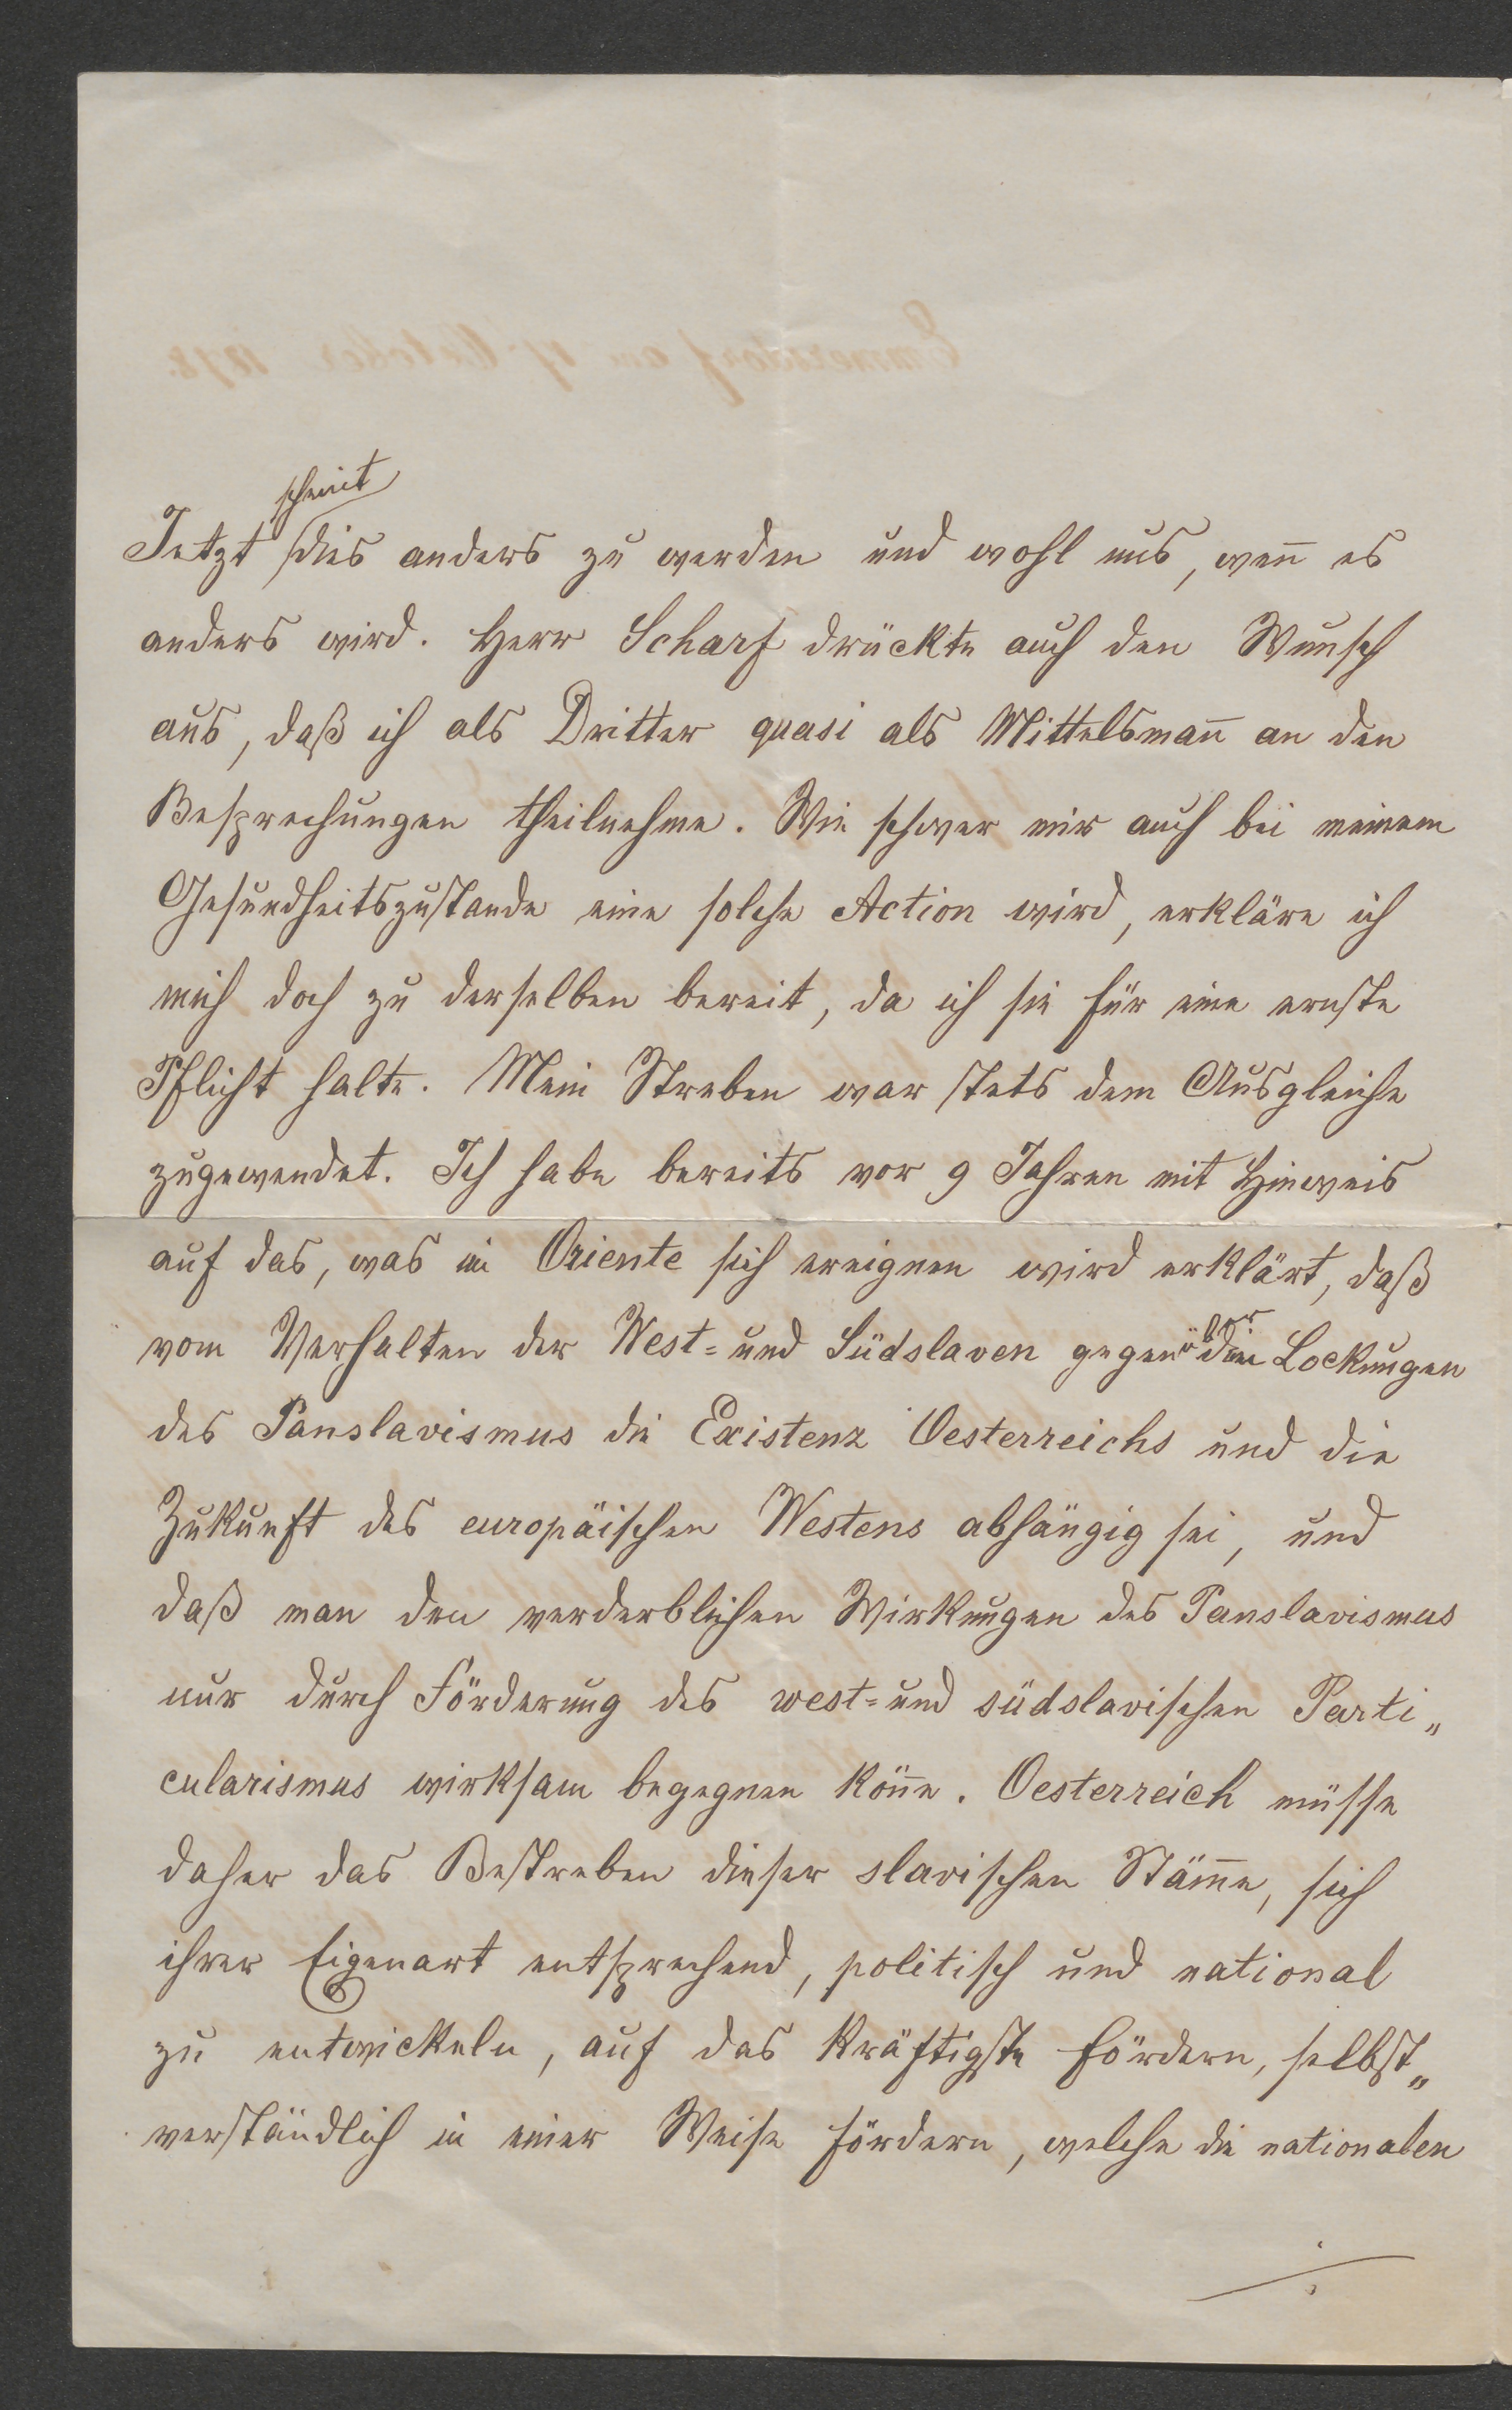 scheint
Jetzt dies anders zu werden und wohl uns, weñ es
anders wird. Herr Scharf drückte auch den Wunsch
aus, daß ich als Dritter quasi als Mittelsmañ an den
Besprechungen theilnehme. Wie schwer mir auch bei meinem
Gesundheitszustande eine solche Action wird, erkläre ich
mich doch zu derselben bereit, da ich sie für eine ernste
Pflicht halte. Mein Streben war stets dem Ausgleiche
zugewendet. Ich habe bereits vor 9 Jahren mit Hinweis
auf das, was im Oriente sich ereignen wird erklärt, daß
vom Verhalten der West- und Südslaven gegenüber den Lockungen
des Panslavismus die Existenz Oesterreichs und die
Zukunft des europäischen Westens abhängig sei, und
daß man den verderblichen Wirkungen des Panslavismus
nur durch Förderung des west- und südslavischen Parti„
cularismus wirksam begegnen köñe. Oesterreich müsse
daher das Bestreben dieser slavischen Stäm̅e, sich
ihrer Eigenart entsprechend, politisch und national
zu entwickeln, auf das kräftigste fördern, selbst„
verständlich in einer Weise fördern, welche die nationalen